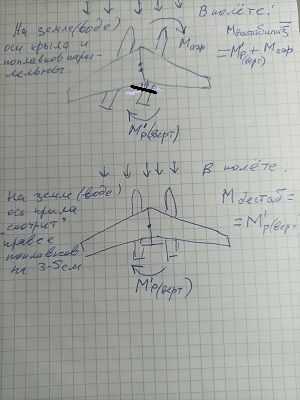 На земле (воде)
оси крыла и
поплавков парал-
лельны
В полёте:
Mдестабилиз
= M'р + Mаэр
(верт)
Mаэр
M'р(верт)
На земле (воде)
ось крыла
"смотрит"
правее
поплавков
на 3-5 см.
В полёте:
M дестаб =
= M'р(верт
M'р(верт)